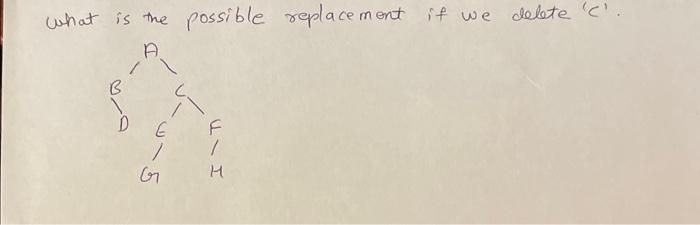 what is the possible replacement if we delete 'C'.
A
B C
D E F
G H